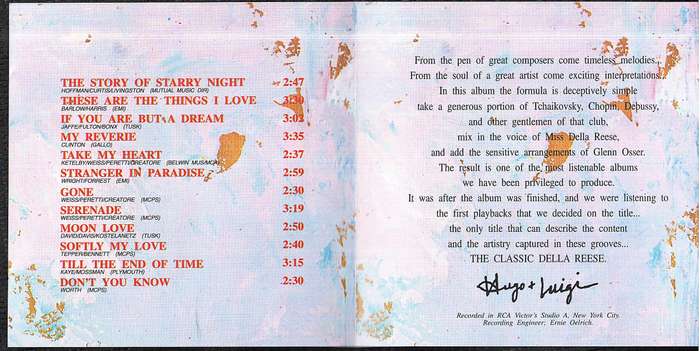 THE STORY OF STARRY NIGHT 2:47
HOFFMAN/CURTIS/LIVINGSTON (MUTUAL MUSIC DIR)
THESE ARE THE THINGS I LOVE 2:30
BARLOW/HARRIS (EMI)
IF YOU ARE BUT A DREAM 3:02
JAFFE/FULTON/BONX (TUSK)
MY REVERIE 3:35
CLINTON (GALLO)
TAKE MY HEART 2:37
KETELBY/WEISS/PERETTI/CREATORE (BELWIN MUS/MCPS)
STRANGER IN PARADISE 2:59
WRIGHT/FORREST (EMI)
GONE 2:30
WEISS/PERETTI/CREATORE (MCPS)
SERENADE 3:19
WEISS/PERETTI/CREATORE (MCPS)
MOON LOVE 2:50
DAVID/DAVIS/KOSTELANETZ (TUSK)
SOFTLY MY LOVE 2:40
TEPPER/BENNETT (MCPS)
TILL THE END OF TIME 3:15
KAYE/MOSSMAN (PLYMOUTH)
DON'T YOU KNOW 2:30
WORTH (MCPS)
From the pen of great composers come timeless melodies..
From the soul of a great artist come exciting interpretations.
In this album the formula is deceptively simple
take a generous portion of Tchaikovsky, Chopin, Debussy,
and other gentlemen of that club,
mix in the voice of Miss Della Reese,
and add the sensitive arrangements of Glenn Osser.
The result is one of the most listenable albums
we have been privileged to produce.
It was after the album was finished, and we were listening to
the first playbacks that we decided on the title...
the only title that can describe the content
and the artistry captured in these grooves...
THE CLASSIC DELLA REESE.
Hugo + Luigi
Recorded in RCA Victor's Studio A, New York City.
Recording Engineer: Ernie Oelrich.